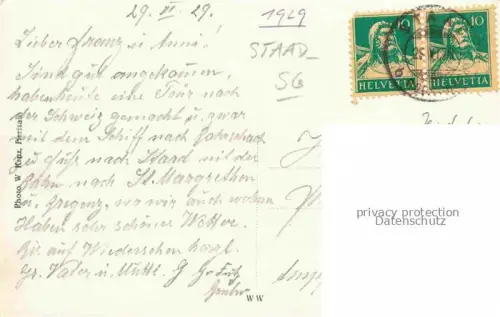 29. VI. 29.
1929
STAAD
SG
Lieber Franz u Anni!
Sind gut angekommen,
haben heute eine Tour nach
der Schweiz gemacht u. zwar
mit dem Schiff nach Rohrschach
zu Fuß nach Staad mit der
Bahn nach St. Margrethen
u. Bregenz, wo wir auch wohnen
Haben sehr schönes Wetter.
Bis auf Wiedersehen herzl.
Gr. Vater u. Mutti.
Photo W
WW
10
HELVETIA
10
HELVETIA
privacy protection
Datenschutz